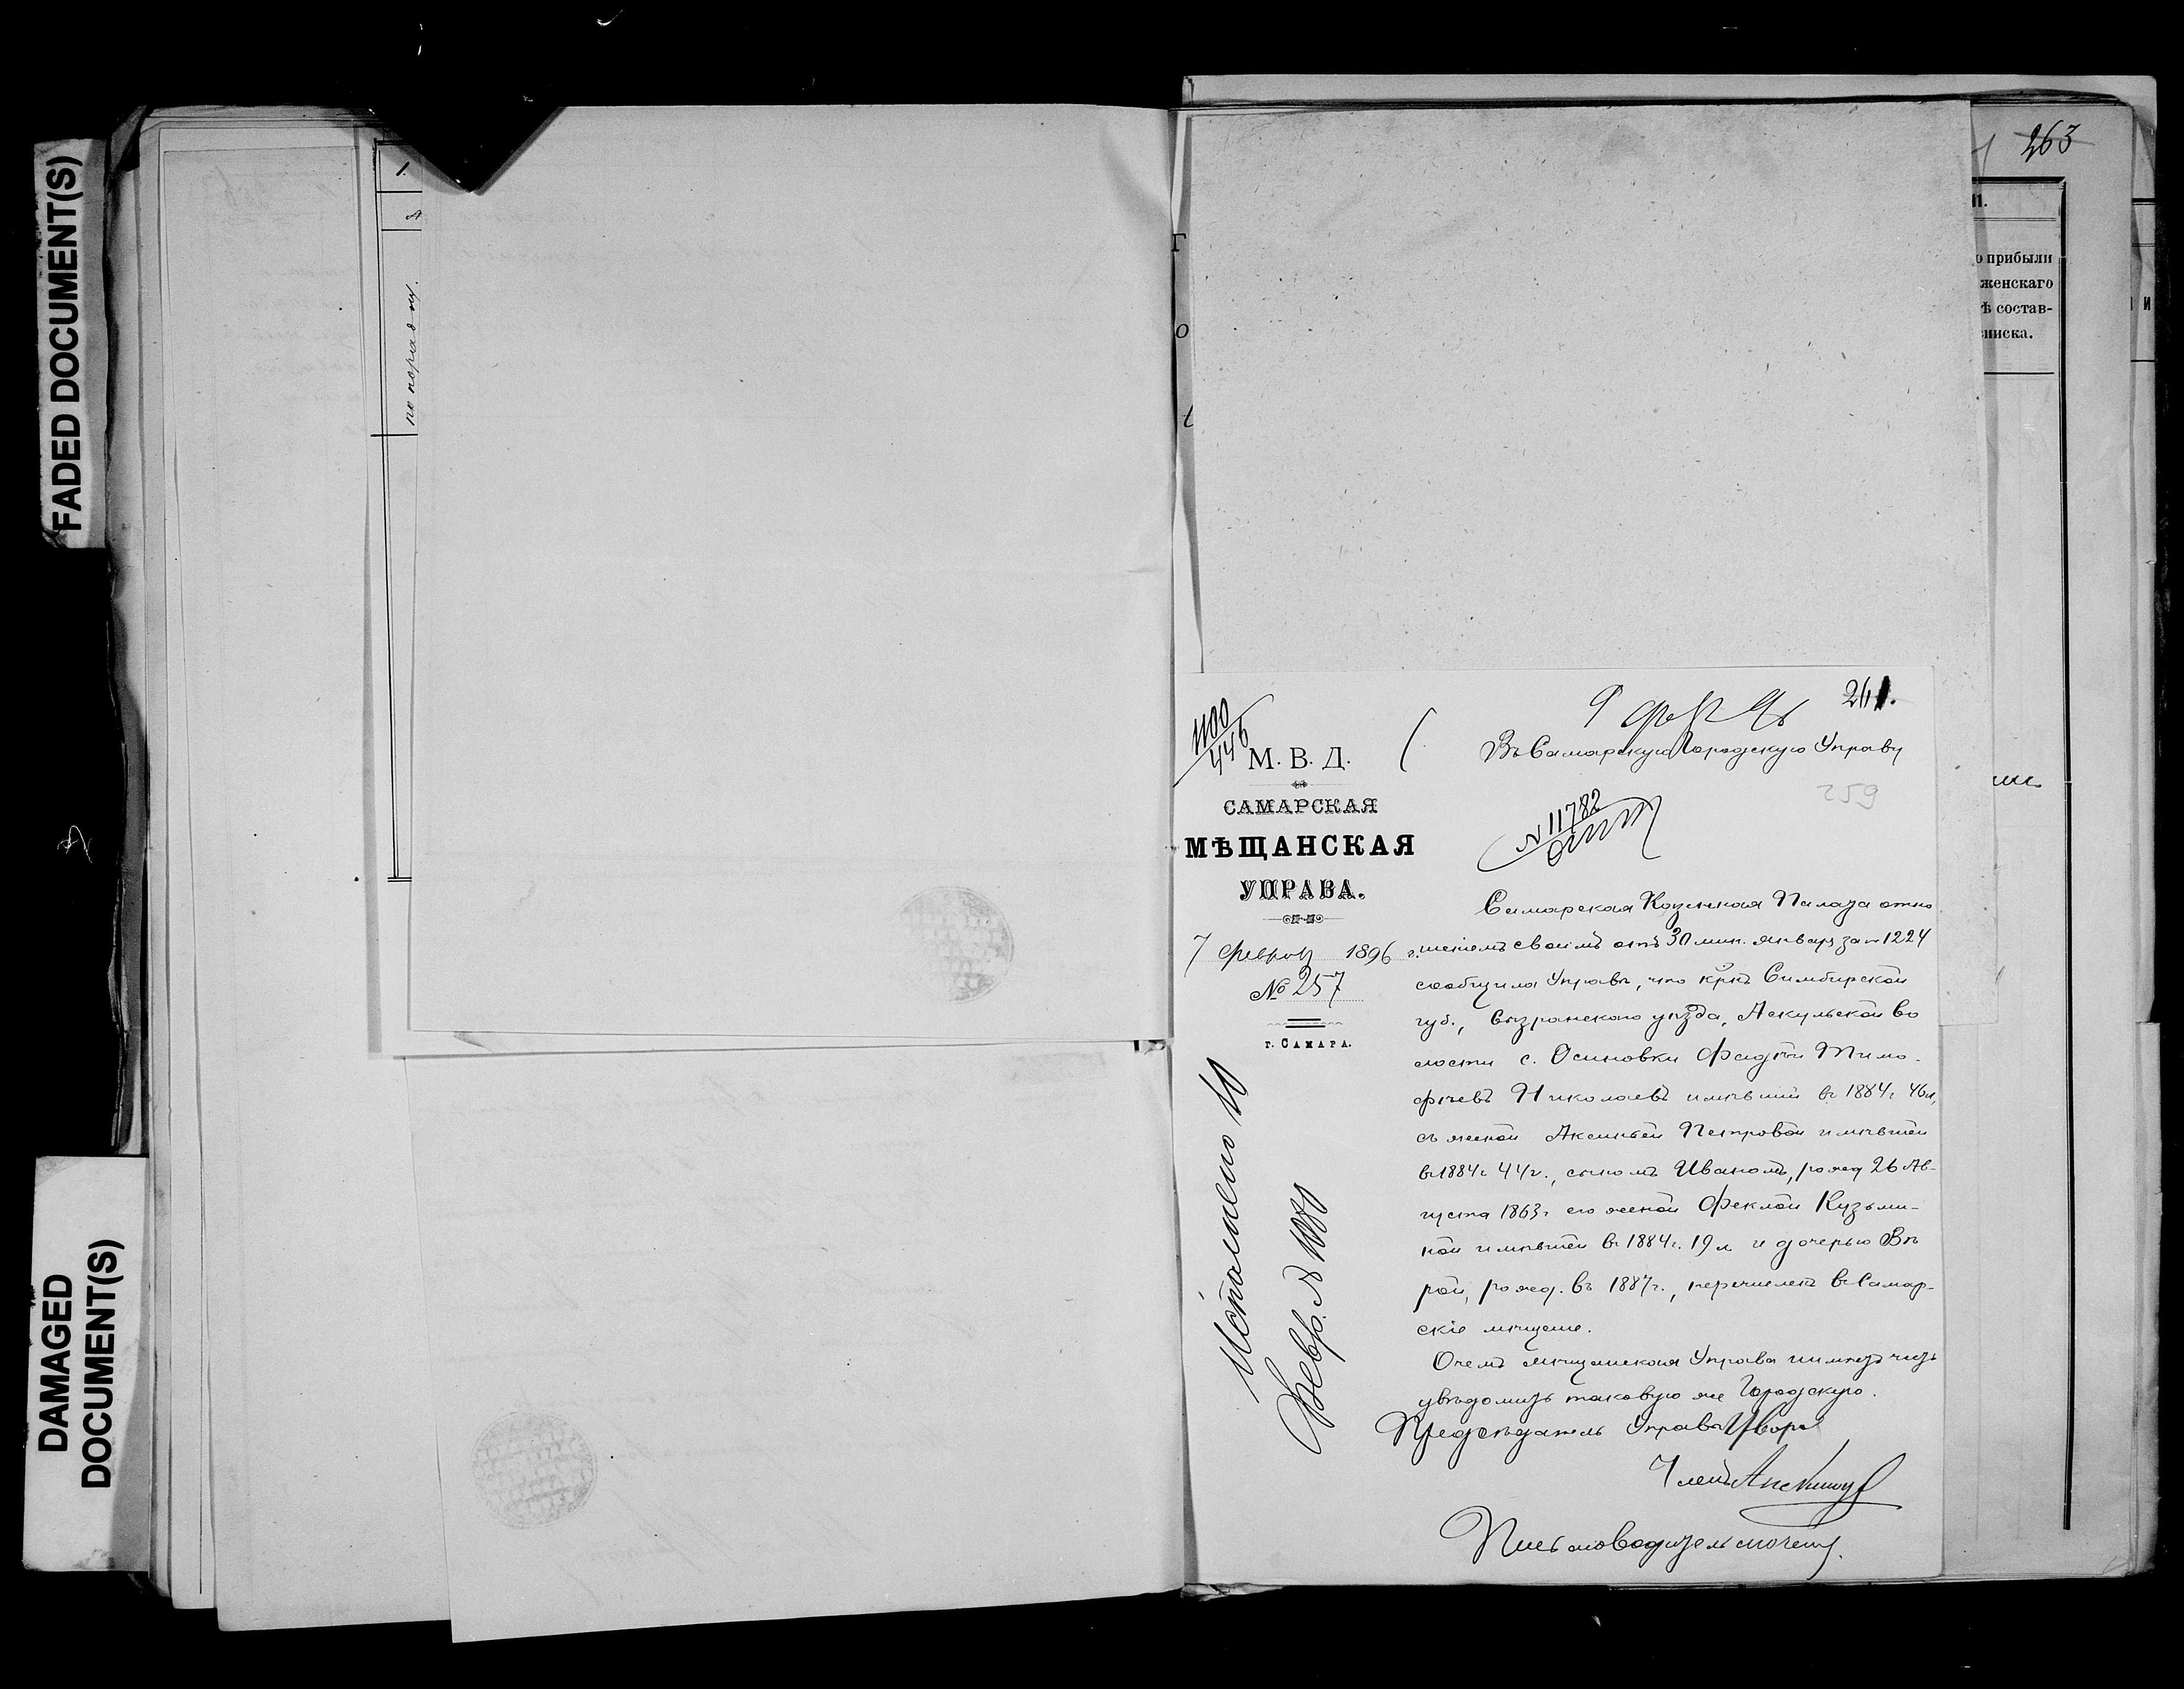 FADED DOCUMENT(S)
DAMAGED
DOCUMENT(S)
1.
по порядку.
263
11.
о прибыли
женскаго
ѣ состав-
списка.
1100
446
261.
М. В. Д.
САМАРСКАЯ
МѢЩАНСКАЯ
УПРАВА.
7 Февраля 1896 г.
№ 257
г. САМАРА.
9 фев 96
Въ Самарскую Городскую Управу
259
N 11782
Самарская Казенная Палата отно
шеніемъ своимъ отъ 30 мин. января за № 1224
сообщила Управѣ, что кр-нъ Симбирской
губ., Сызранскаго уѣзда, Аскульской во
лости с. Осиновки Фадѣй Тимо-
фѣевъ Николаевъ имѣвшій въ 1884 г 46 л,
съ женой Аксиньей Петровой имѣвшей
въ 1884 г 44 г., сыномъ Иваномъ, рожд 26 Ав-
густа 1863 г его женой Феклой Кузьми-
ной имѣвшей въ 1884 г. 19 л и дочерью Вѣ
рой, рожд. въ 1887 г., перечислены въ Самар-
скіе мѣщане.
О чемъ Мѣщанская Управа имѣетъ честь
увѣдомить таковую же Городскую.
Предсѣдатель Управы
Членъ
Письмоводитель
Исполнено 10
Февр. № 1080